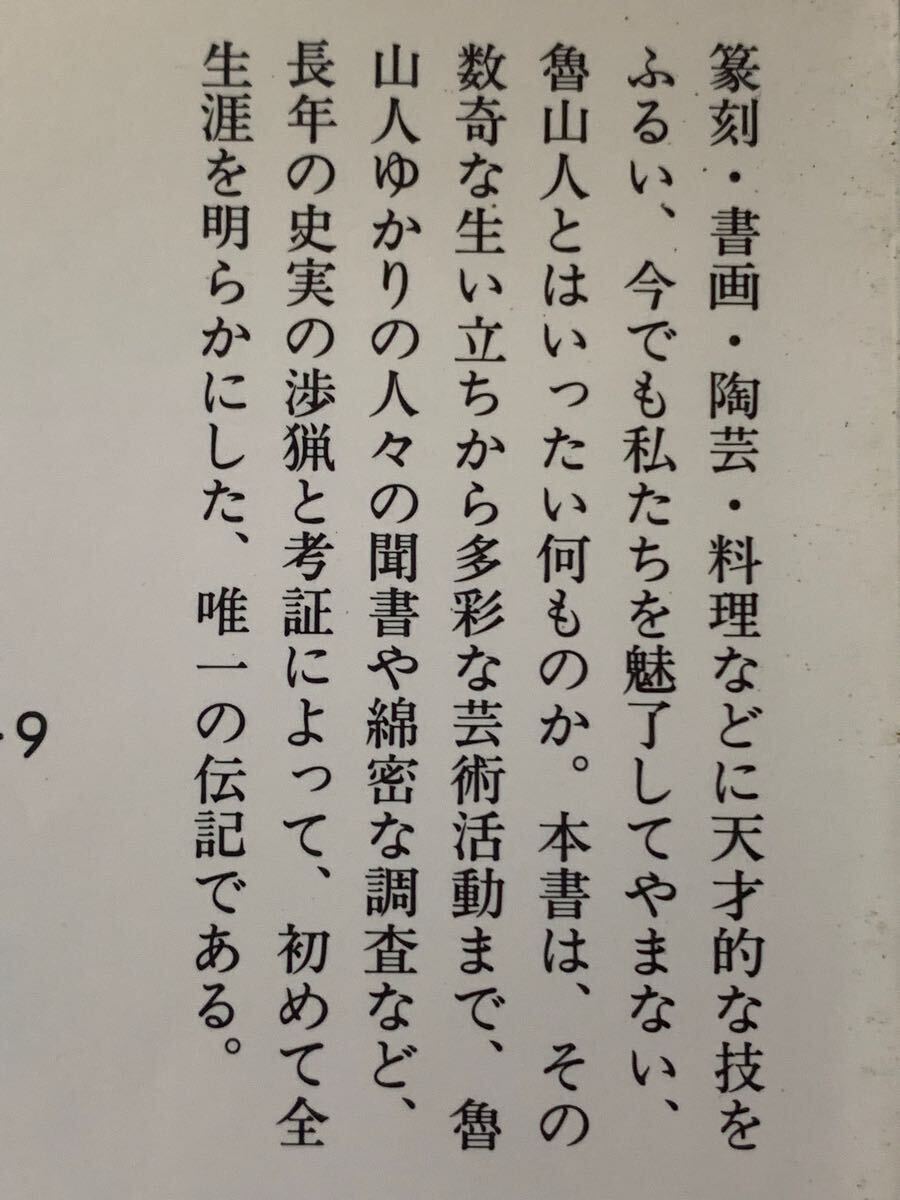 篆刻・書画・陶芸・料理などに天才的な技を
ふるい、今でも私たちを魅了してやまない、
魯山人とはいったい何ものか。本書は、その
数奇な生い立ちから多彩な芸術活動まで、魯
山人ゆかりの人々の聞書や綿密な調査など、
長年の史実の渉猟と考証によって、初めて全
生涯を明らかにした、唯一の伝記である。
-9